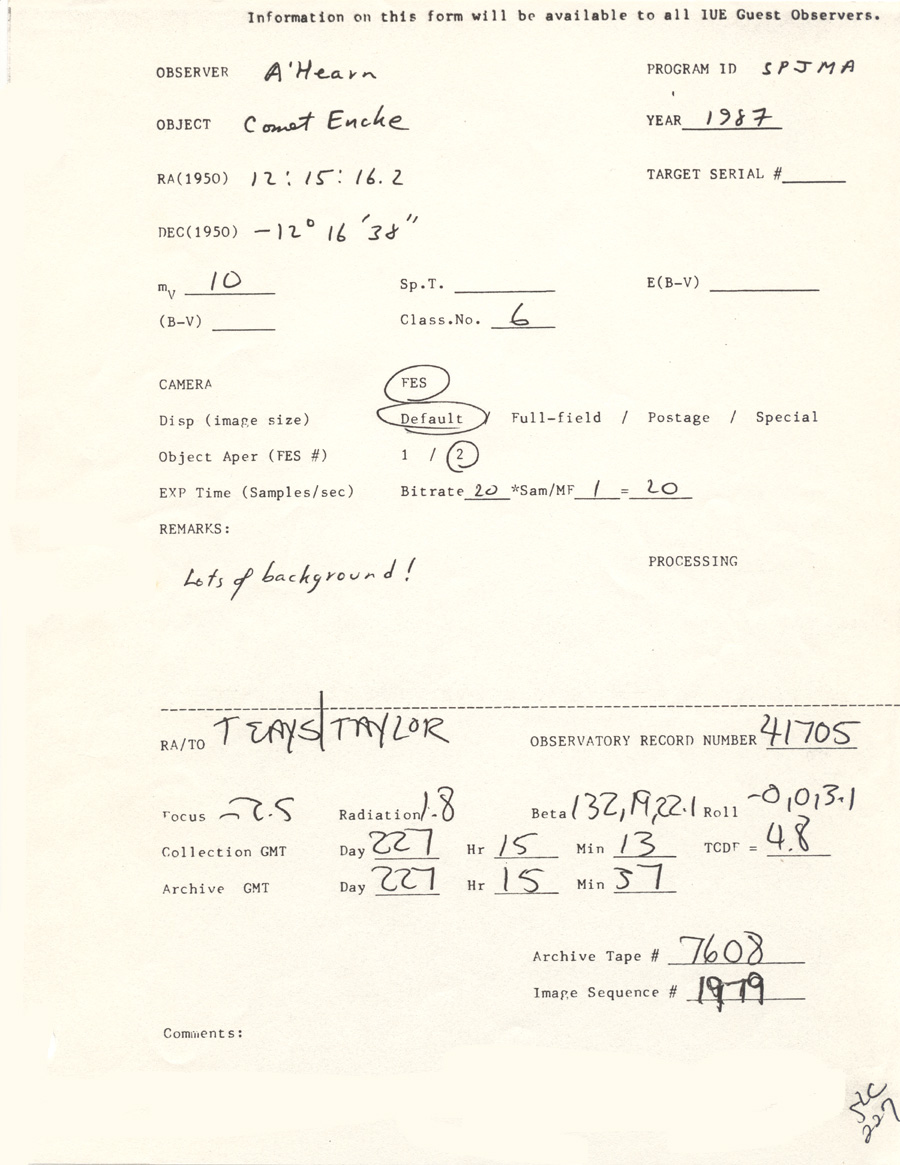 Information on this form will be available to all IUE Guest Observers.
OBSERVER A'Hearn PROGRAM ID SPJMA
OBJECT Comet Encke YEAR 1987
RA(1950) 12:15:16.2 TARGET SERIAL #
DEC(1950) -12° 16 '38"
mV 10 Sp.T. E(B-V)
(B-V) Class.No. 6
CAMERA FES
Disp (image size) Default / Full-field / Postage / Special
Object Aper (FES #) 1 / 2
EXP Time (Samples/sec) Bitrate 20 *Sam/MF 1 = 20
REMARKS:
PROCESSING
Lots of background!
RA/TO TEAYS/TAYLOR OBSERVATORY RECORD NUMBER 41705
Focus -2.5 Radiation 1.8 Beta 132,19,22.1 Roll -0,0,13.1
Collection GMT Day 227 Hr 15 Min 13 TCDF = 4.8
Archive GMT Day 227 Hr 15 Min 37
Archive Tape # 7608
Image Sequence # 1979
Comments:
227